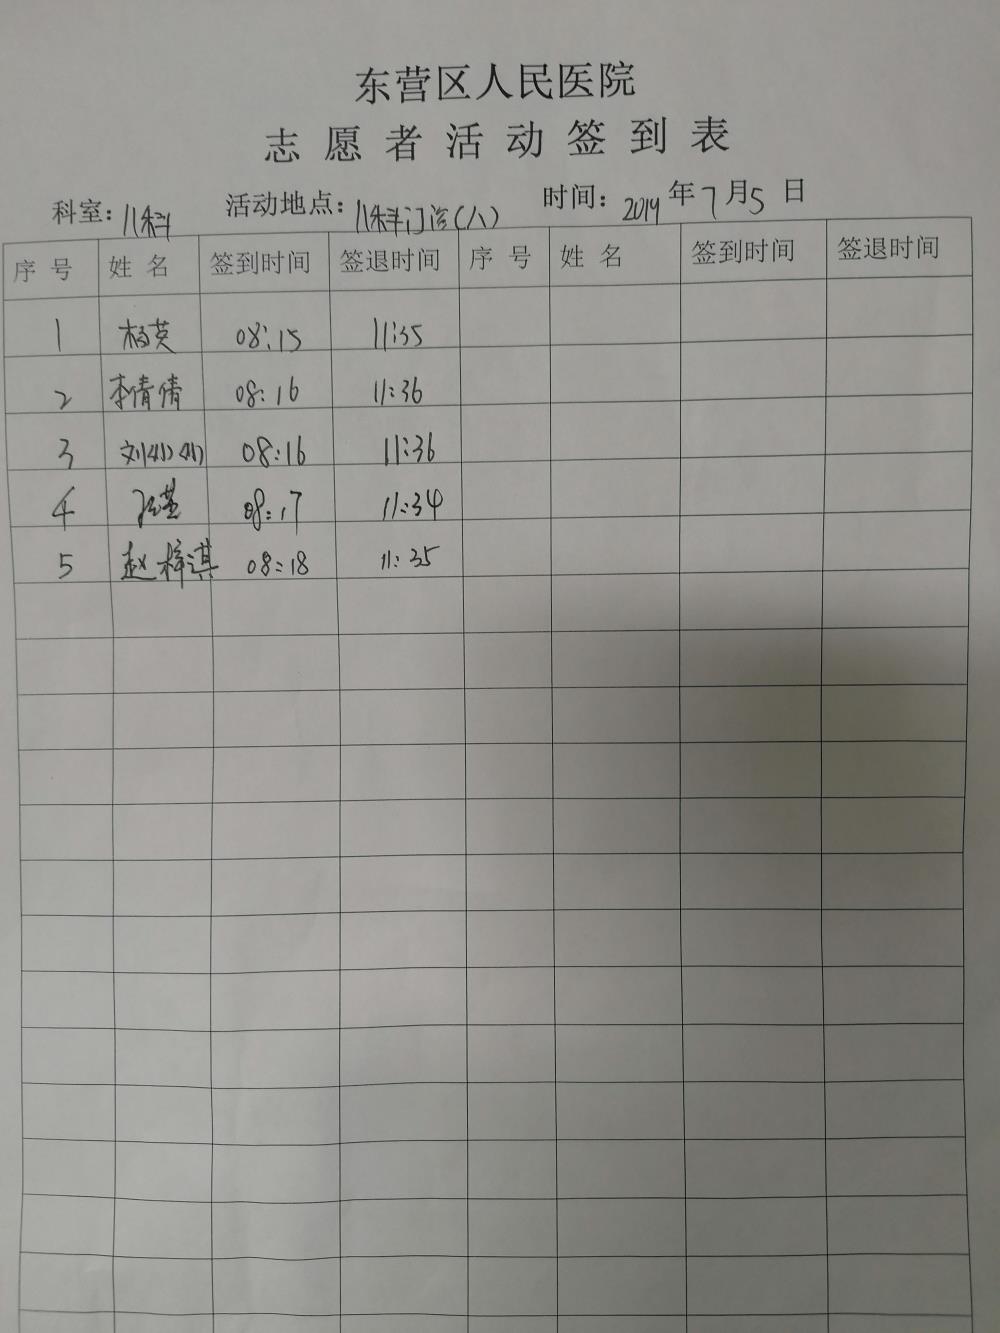 东营区人民医院
志愿者活动签到表
科室：儿科 活动地点：儿科门诊(八) 时间：2019年7月5日
序号 姓名 签到时间 签退时间 序号 姓名 签到时间 签退时间
1 杨英 08:15 11:35
2 李倩倩 08:16 11:36
3 刘小小 08:16 11:36
4 08:17 11:34
5 赵梓淇 08:18 11:35